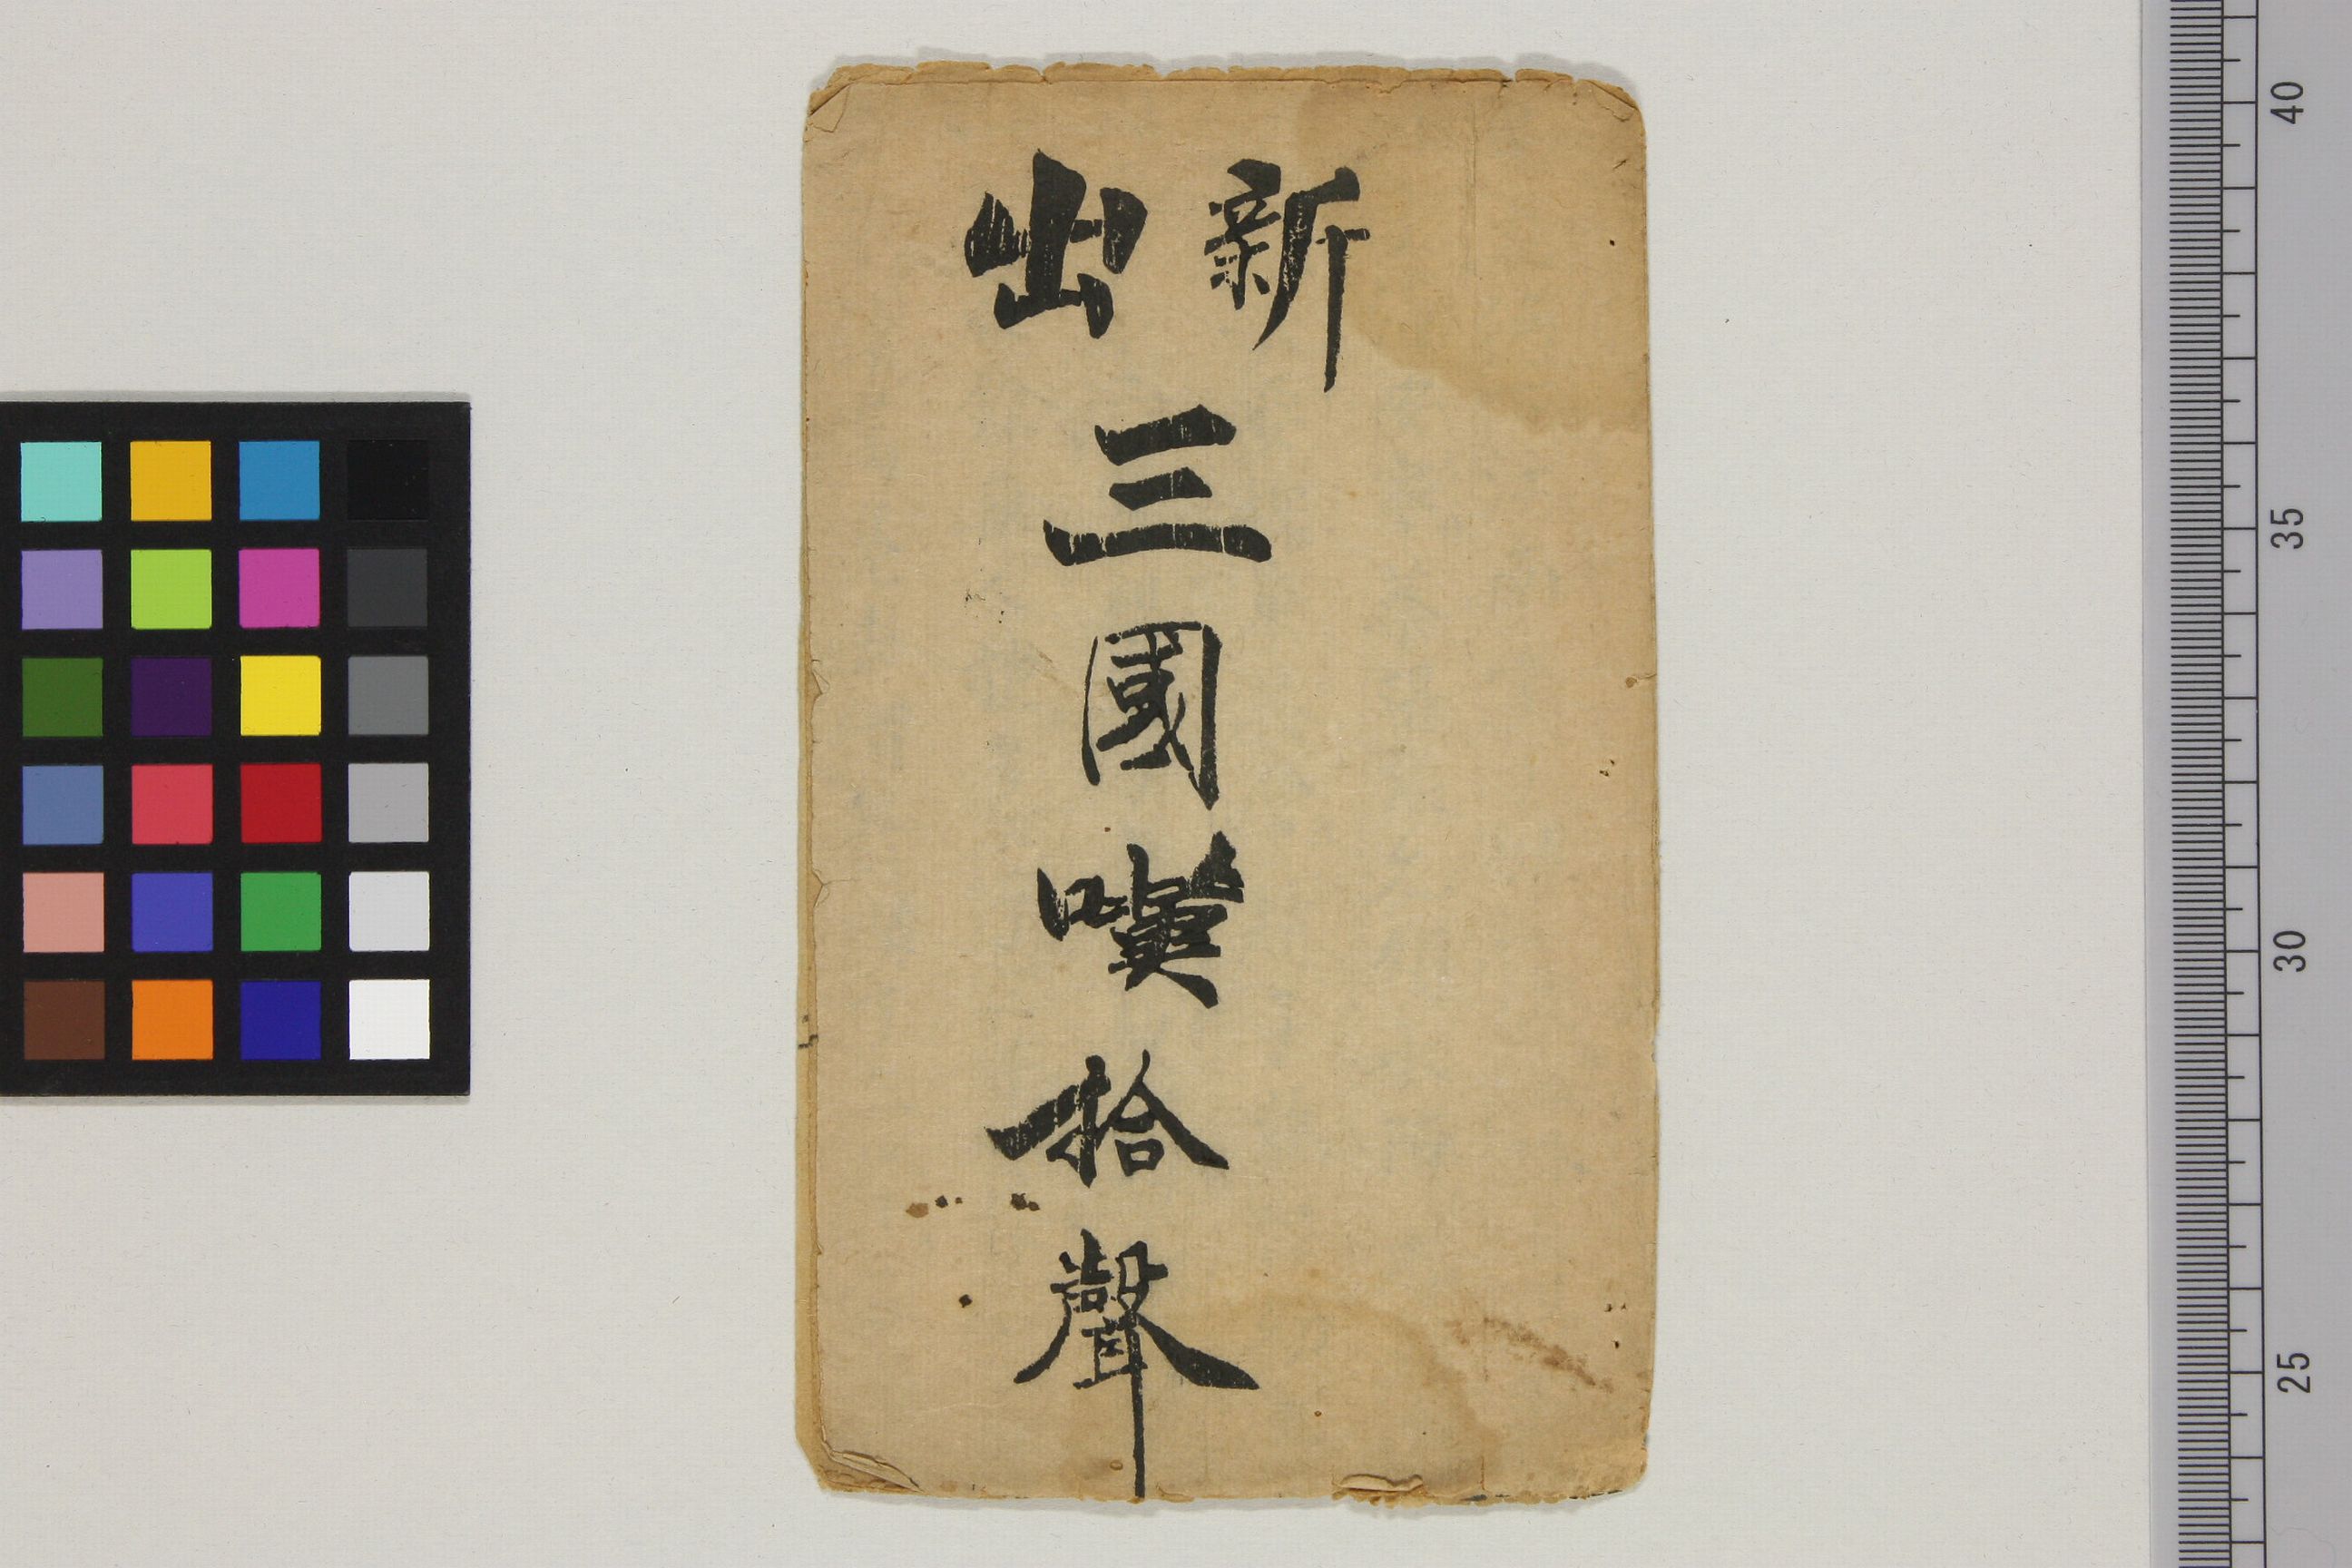 新出
三國嘆拾聲
40
35
30
25